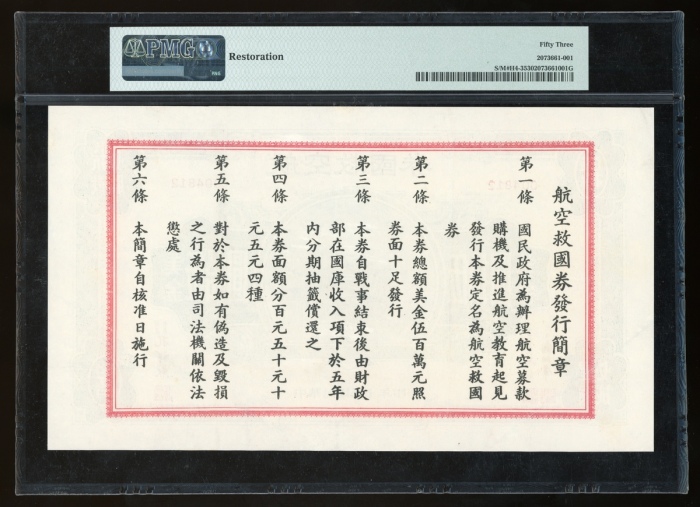 PMG
Restoration
Fifty Three
2073661-001
S/M#H4-35302073661001G
航空救國券發行簡章
第一條 國民政府為辦理航空募款
購機及推進航空教育起見
發行本券定名為航空救國
券
第二條 本券總額美金伍百萬元照
券面十足發行
第三條 本券自戰事結束後由財政
部在國庫收入項下於五年
內分期抽籤償還之
第四條 本券面額分百元五十元十
元五元四種
第五條 對於本券如有偽造及毀損
之行為者由司法機關依法
懲處
第六條 本簡章自核准日施行